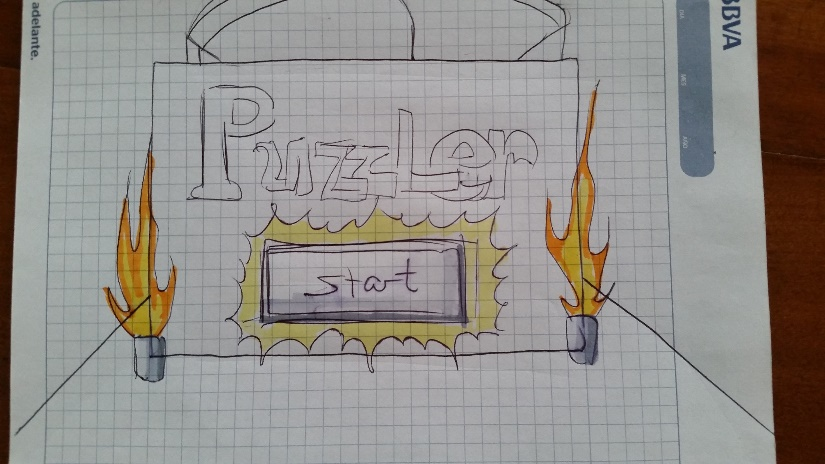 adelante.
BBVA
DIA
MES
AÑO
Puzzler
start